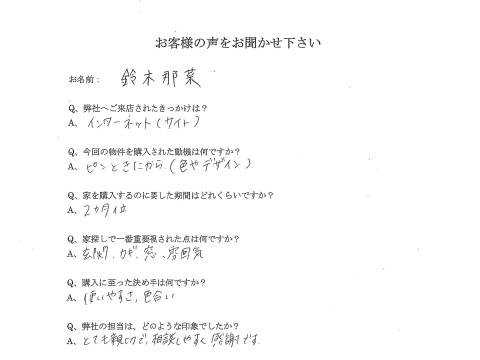 お客様の声をお聞かせ下さい
お名前： 鈴木那菜
Q、弊社へご来店されたきっかけは？
A、インターネット（サイト）
Q、今回の物件を購入された動機は何ですか？
A、ピンときたから.（色やデザイン）
Q、家を購入するのに要した期間はどれくらいですか？
A、2ヵ月位
Q、家探しで一番重要視された点は何ですか？
A、玄関、カギ、窓、雰囲気
Q、購入に至った決め手は何ですか？
A、使いやすさ，色合い
Q、弊社の担当は、どのような印象でしたか？
A、とても親切で，相談しやすく感謝です.